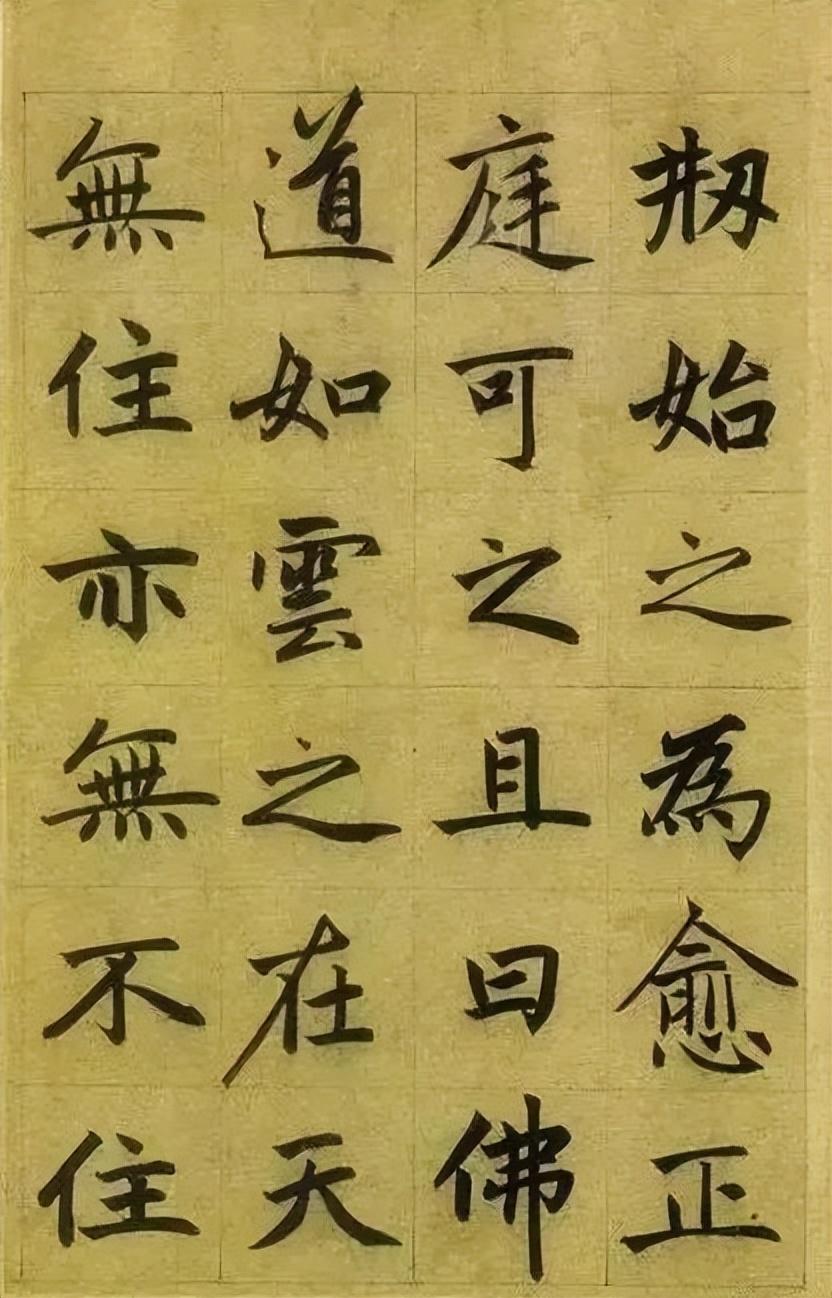 剙始之為愈正
庭可之且曰佛
道如雲之在天
無住亦無不住